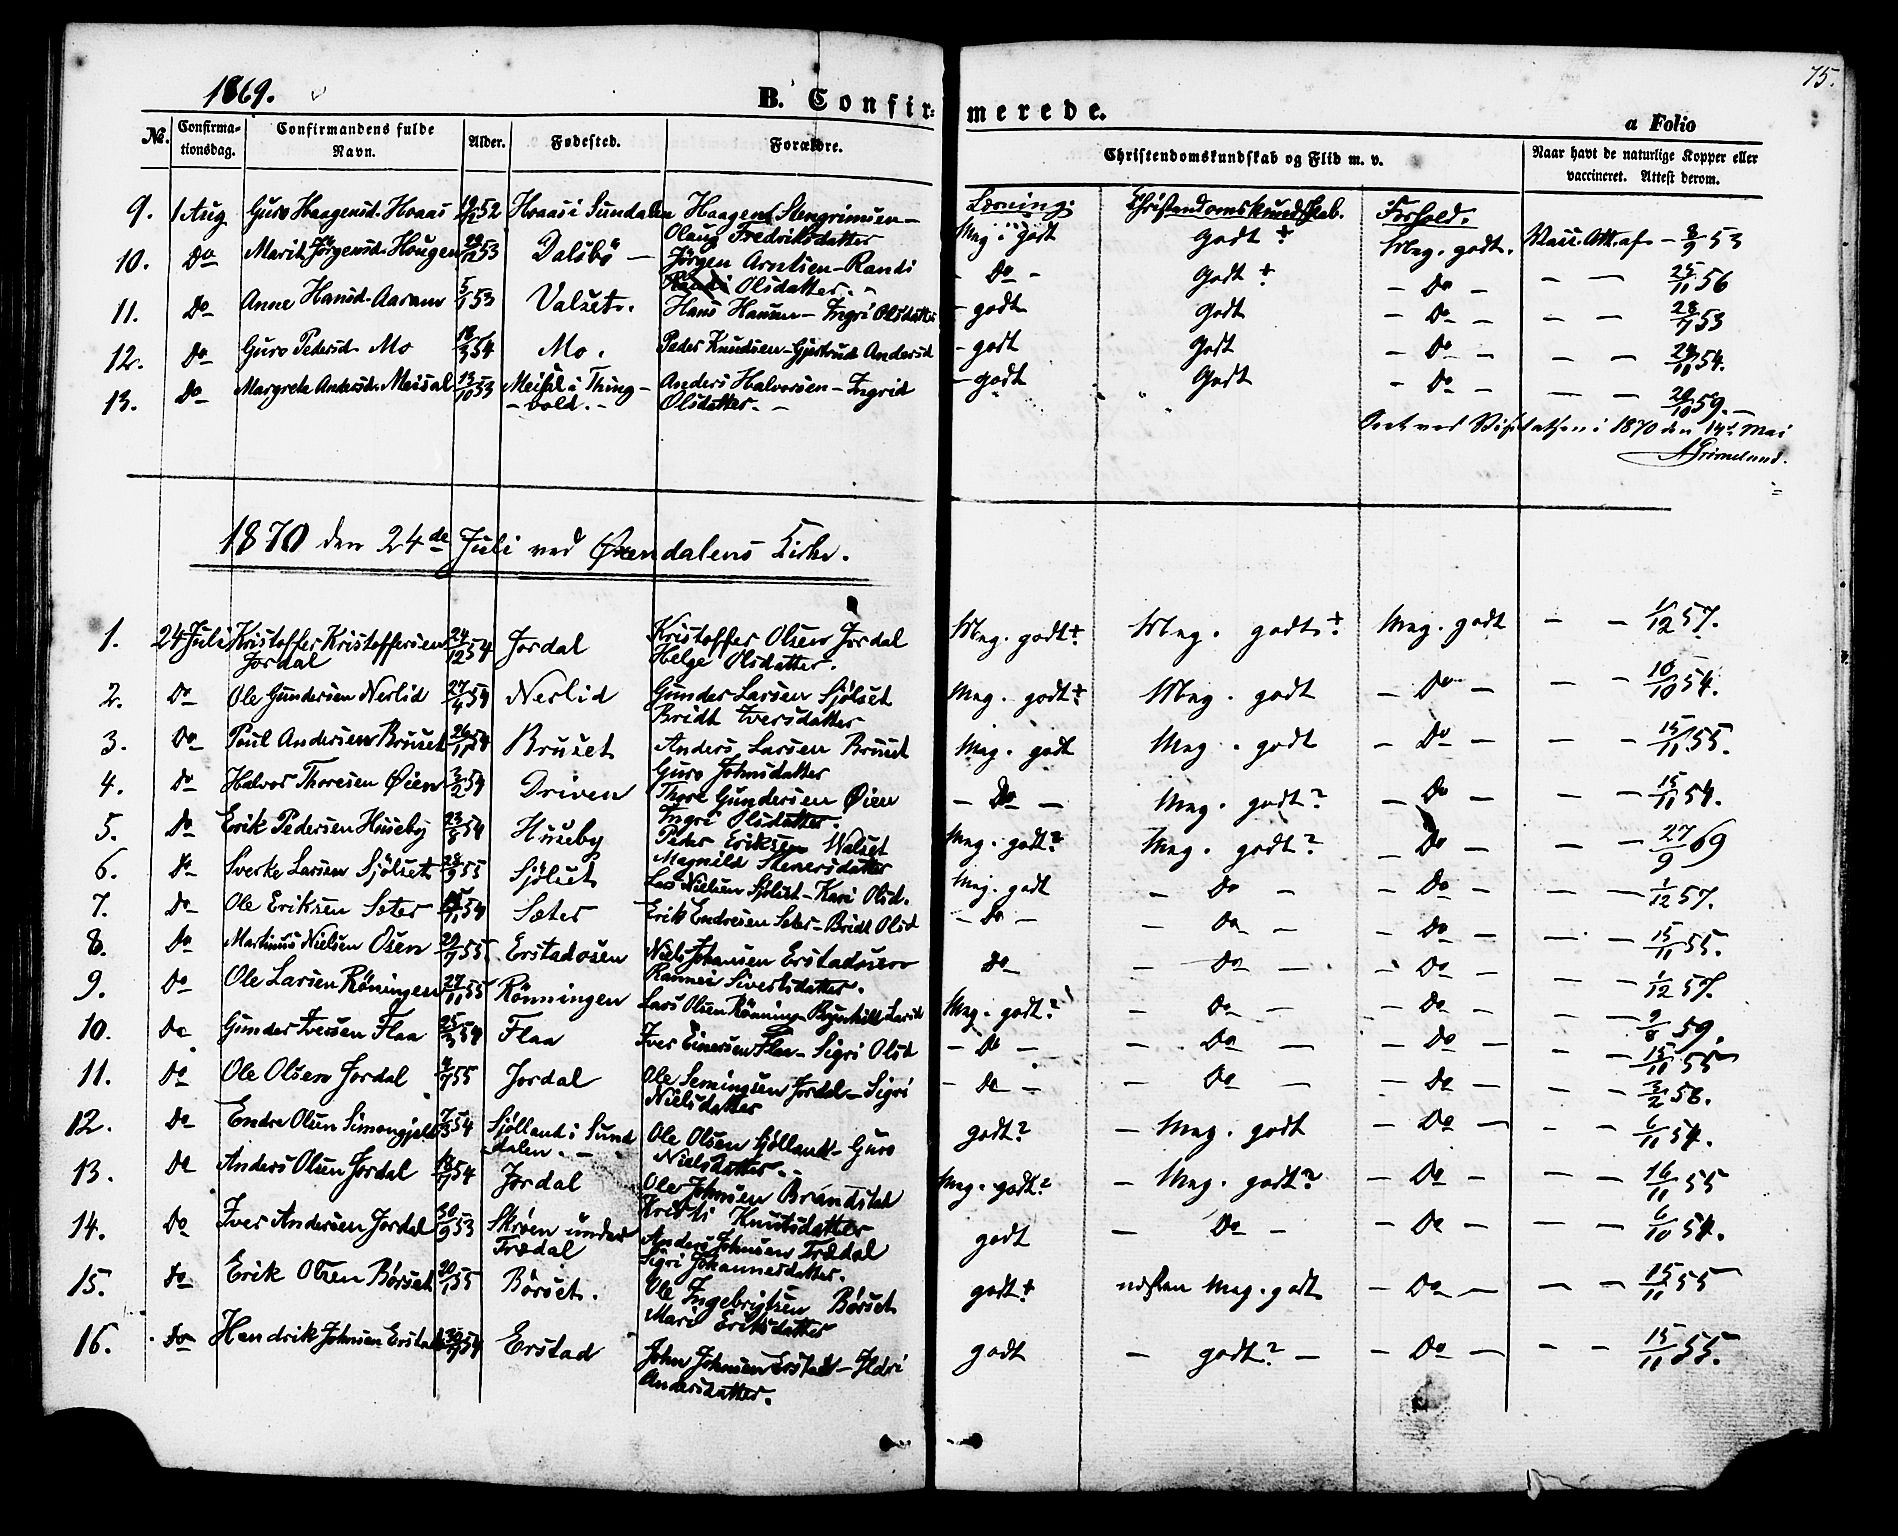 1869.
75.
B. Confirmerede.
a Folio
No. Confirmationsdag. Confirmandens fulde Navn. Alder. Fødested. Forældre. Christendomskundskab og Flid m. v. Naar havt de naturlige Kopper eller vaccineret. Attest derom.
Læsning: Christendomskundskab. Forhold.
9. 1 Aug Guro Haagensd. Hoaas 52 Hoaas i Sundalen Haagen Stengrimsen — Olaug Fredriksdatter Mag i godt Godt + Meg. godt. Vacc. Att. af — 8/9 53
10. Do Marit Jørgensd. Hougen 53 Dalsbø — Jørgen Arntsen — Randi Olsdatter. — Do — Godt + — Do — — — 25/11 56
11. Do Anne Hansd. Aaram 5/1 53 Valset. Hans Hansen — Ingri Olsdatter — godt Godt — Do — — — 28/7 53
12. Do Guro Pedersd. Mo 18/3 54 Mo. Peder Knudsen — Gjertrud Andersd — godt Godt — Do — — — 54.
13. Do Margrete Andersd. Meisal 13/10 53 Meisal i Thingvold. — Anders Halvorsen — Ingrid Olsdatter. — — godt Godt — Do — — — 20/10 59. —
Seet ved Visitatsen i 1870 den 14de Mai
A Grimelund.
1870 den 24de Juli ved Øxendalens Kirke.
1. 24 Juli Kristoffer Kristoffersen Jordal 24/12 54 Jordal Kristoffer Olsen Jordal Helge Olsdatter. Meg. godt + Meg. godt + Meg. godt — — 1/12 57.
2. Do Ole Gundersen Nerlid 27/4 54 Nerlid Gunder Larsen Sjølset Bridt Iversdatter Meg. godt + Meg. godt — Do — — — 10/10 54.
3. Do Poul Andersen Bruset 26/11 54 Bruset Anders Larsen Bruset Guro Johnsdatter Meg. godt Meg. godt — Do — — — 15/11 55.
4. Do Halvor Thoresen Øien 3/2 54 Driven Thore Gundersen Øien Ingri Olsdatter. — Do — Meg. godt? — Do — — — 15/11 54.
5. Do Erik Pedersen Huseby 23/8 54 Huseby Peder Eriksen Walset Magnild Stenersdatter Meg. godt? Meg. godt? — Do — — — 27/9 69
6. Do Sverke Larsen Sjølset 28/9 55 Sjølset Lars Nielsen Sjølset — Kari Olsd. Meg. godt — Do — — Do — — — 1/12 57.
7. Do Ole Eriksen Sæter 54 Sæter Erik Endresen Sæter — Bridt Olsd — Do — — Do — — Do — — — 15/11 55.
8. Do Martinus Nielsen Osen 29/7 55. Erstadosen Niels Johansen Erstadosen Rannei Sivertsdatter. Do — Do — — Do — — — 1/12 57.
9. Do Ole Larsen Rønningen 27/11 55 Rønningen Lars Olsen Rønning — Ragnhild Larsd Meg. godt? — Do — — Do — — — 2/8 59.
10. Do Gunder Iversen Flaa 25/3 54 Flaa Iver Einersen Flaa — Sigri Olsd — Do — — Do — — Do — — — 15/11 55
11. Do Ole Olsen Jordal 55 Jordal Ole Semingsen Jordal — Sigri Nielsdatter — Do — — Do — — Do — — — 3/2 58.
12. Do Endre Olsen Simongjeld 7/3 54 Sjølland i Sunddalen. — Ole Olsen Sjølland — Guro Nielsdatter. — godt? — Meg. godt — Do — — — 6/11 54.
13. Do Anders Olsen Jordal 54 Jordal Ole Johnsen Brandstad Kristi Knutsdatter Meg. godt? — Meg. godt? — Do — — — 16/11 55
14. Do Iver Andersen Jordal 30/9 53 Skrøen under Trædal Anders Johnsen Trædal Sigri Johannesdatter. godt — Do — — Do — — — 6/10 54.
15. Do Erik Olsen Børset 20/1 55 Børset. Ole Ingebrigtsen Børset Mari Eriksdatter godt + næsten Meg. godt — Do — — — 15/11 55
16. Do Hendrik Johnsen Erstad 54 Erstad John Johnsen Erstad — Ildri Andersdatter. godt — godt? — — Do — — — 15/11 55.